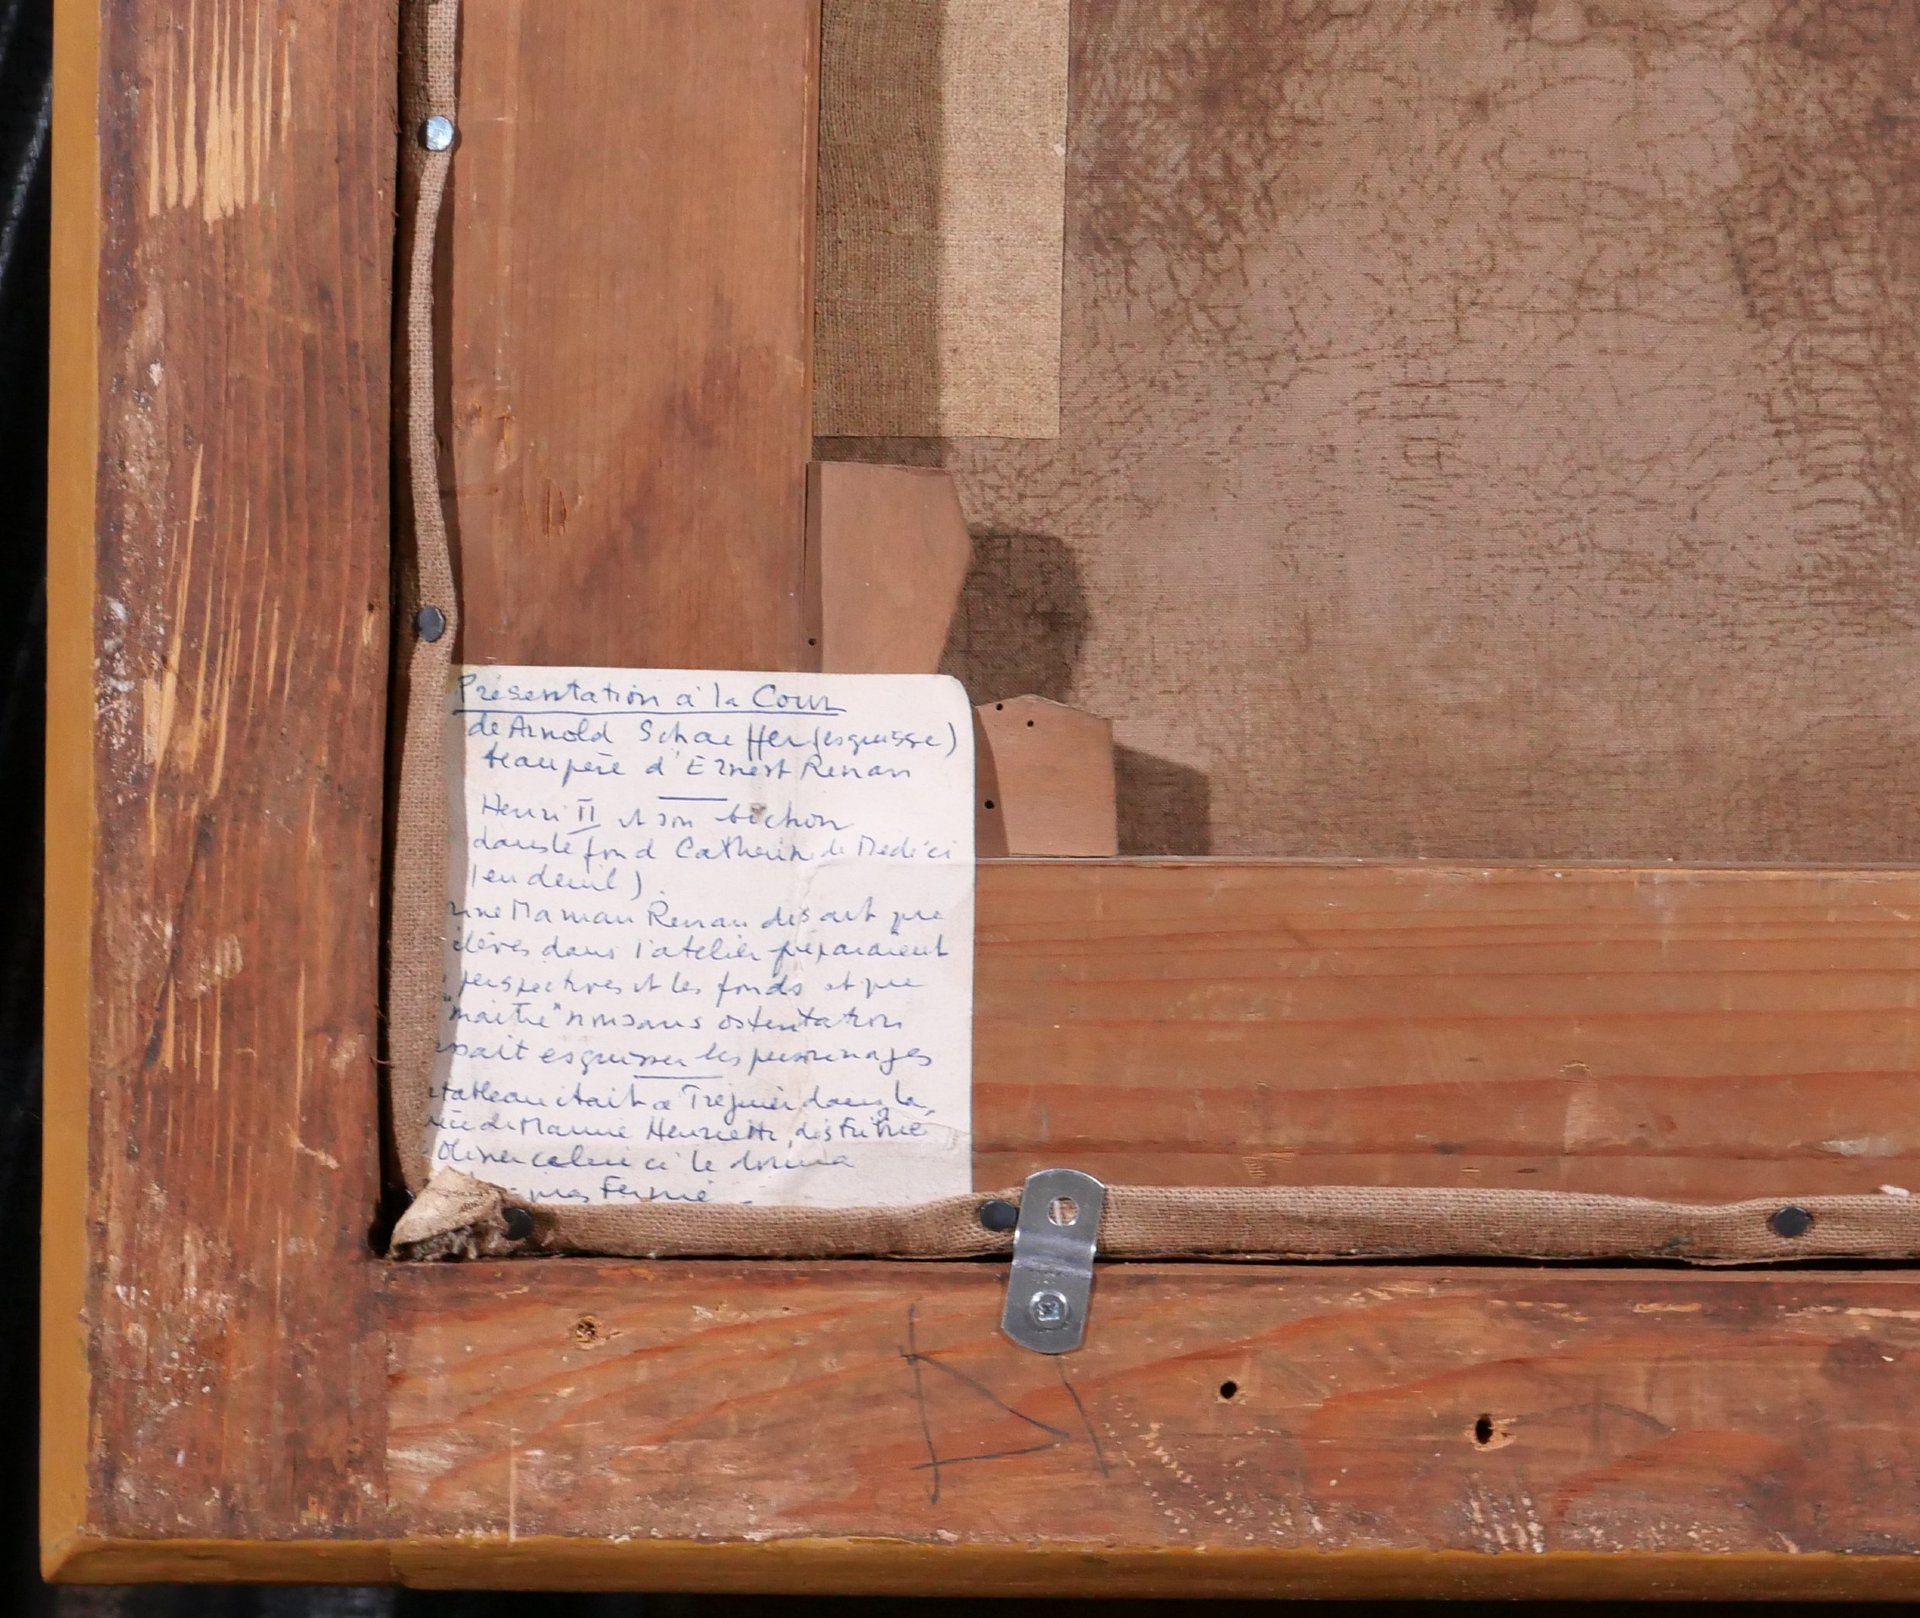 Présentation à la Cour
de Arnold Schaeffer (esquisse)
beaupère d'Ernest Renan
Henri II et son bichon
dans le fond Catherine de Medeici
(en deuil)
Maman Renan disait que
élèves dans l'atelier préparaient
perspectives et les fonds et que
"maitre" non sans ostentation
esquisser les personnages
tableau était à Tréguier dans la
de Mamie Henriette,
celui ci le donna